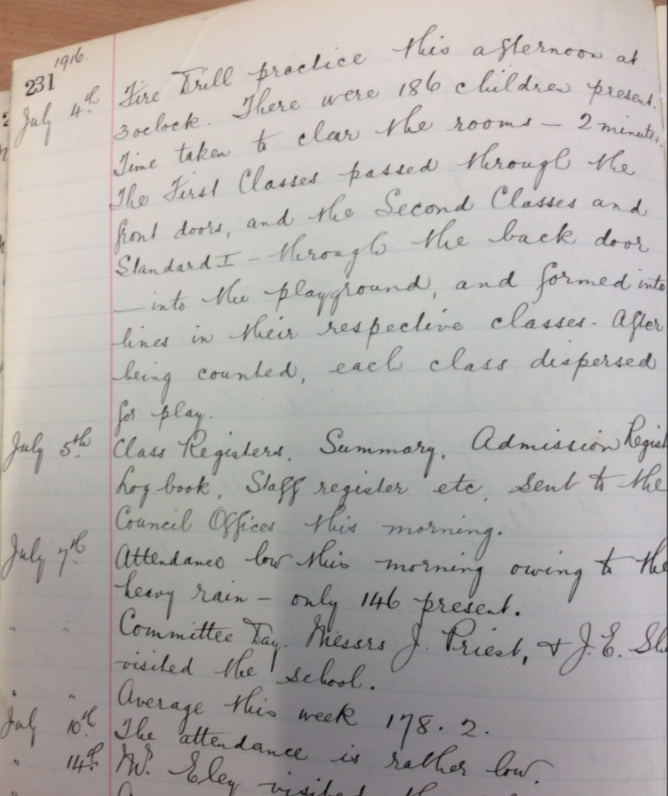 1916.
231
July 4th Fire Drill practice this afternoon at
3 oclock. There were 186 children present.
Time taken to clear the rooms — 2 minutes.
The First Classes passed through the
front doors, and the Second Classes and
Standard I — through the back door
— into the playground, and formed into
lines in their respective classes. After
being counted, each class dispersed
for play.
July 5th Class Registers, Summary, Admission Regist
Log book, Staff register etc, sent to the
Council Offices this morning.
July 7th Attendance low this morning owing to the
heavy rain — only 146 present.
" " Committee Day. Messrs J. Priest, & J.E.
visited the school.
" " Average this week 178.2.
July 10th The attendance is rather low.
" 14th Mr. Eley visited the